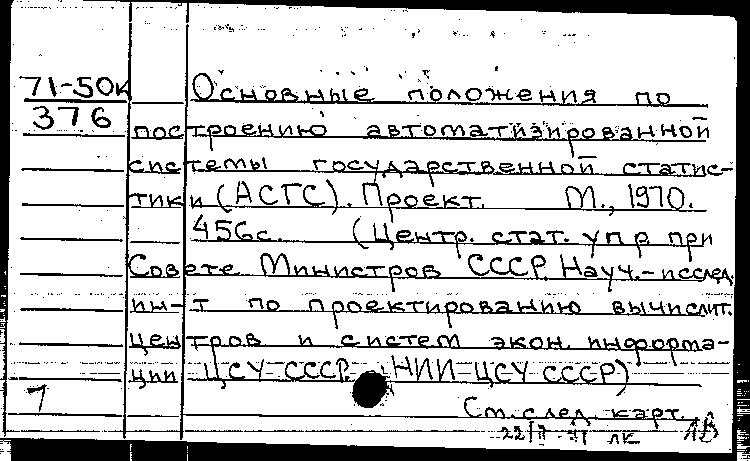 71-50к Основные положения по
376 построению автоматизированной
системы государственной статис-
тики (АСГС). Проект. М., 1970.
456с. (Центр. стат. упр. при
Совете Министров СССР. Науч.-исслед.
ин-т по проектированию вычислит.
центров и систем экон. информа-
ции ЦСУ СССР. НИИ ЦСУ СССР)
1
См. след. карт.
ЛК